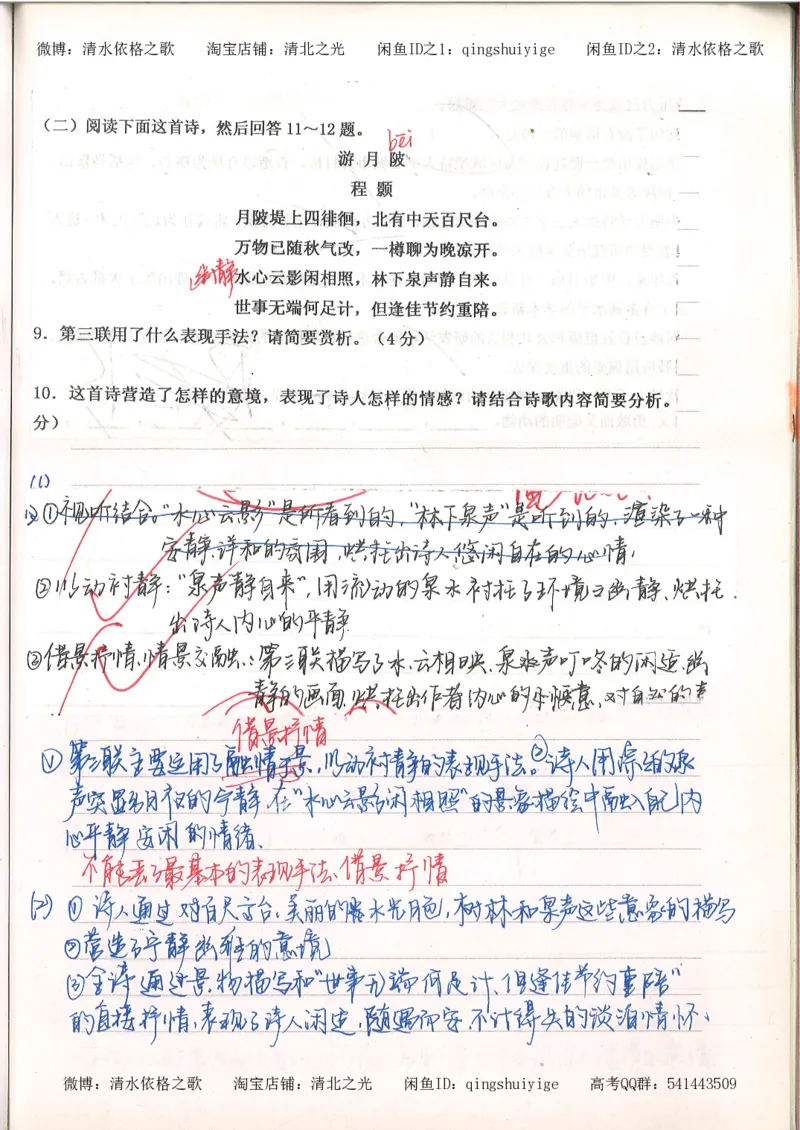 微博：清水依格之歌 淘宝店铺：清北之光 闲鱼ID之1：qingshuiyige 闲鱼ID之2：清水依格之歌
（二）阅读下面这首诗，然后回答11～12题。
bēi
游月陂
程颢
月陂堤上四徘徊，北有中天百尺台。
万物已随秋气改，一樽聊为晚凉开。
幽静
水心云影闲相照，林下泉声静自来。
世事无端何足计，但逢佳节约重陪。
9．第三联用了什么表现手法？请简要赏析。（4分）
10．这首诗营造了怎样的意境，表现了诗人怎样的情感？请结合诗歌内容简要分析。
分）
(1)
①视听结合。"水心云影"是所看到的，"林下泉声"是听到的，渲染了一种
安静、详和的氛围，烘托出诗人悠闲自在的心情；
②以动衬静："泉声静自来"，用流动的泉水衬托了环境之幽静、烘托
出诗人内心的平静
②借景抒情、情景交融：第三联描写了水、云相映、泉水声叮咚的闲适、幽
静的画面，烘托出作者内心的
借景抒情
第三联主要运用了融情于景，以动衬静的表现手法。②诗人用淙淙的泉
声突显出月夜的宁静，在"水心云影闲相照"的景象描绘中融入自己内
心平静 安闲的情绪、
不能丢了最基本的表现手法、借景抒情
(2) ① 诗人通过对百尺高台，美丽的陂水月色，树林和泉声这些意象的描写
②营造了宁静幽雅的意境
③全诗通过景物描写和"世事无端何足计、但逢佳节约重陪"
的直接抒情，表现了诗人闲适，随遇而安，不计得失的淡泊情怀、
微博：清水依格之歌 淘宝店铺：清北之光 闲鱼ID：qingshuiyige 高考QQ群：541443509